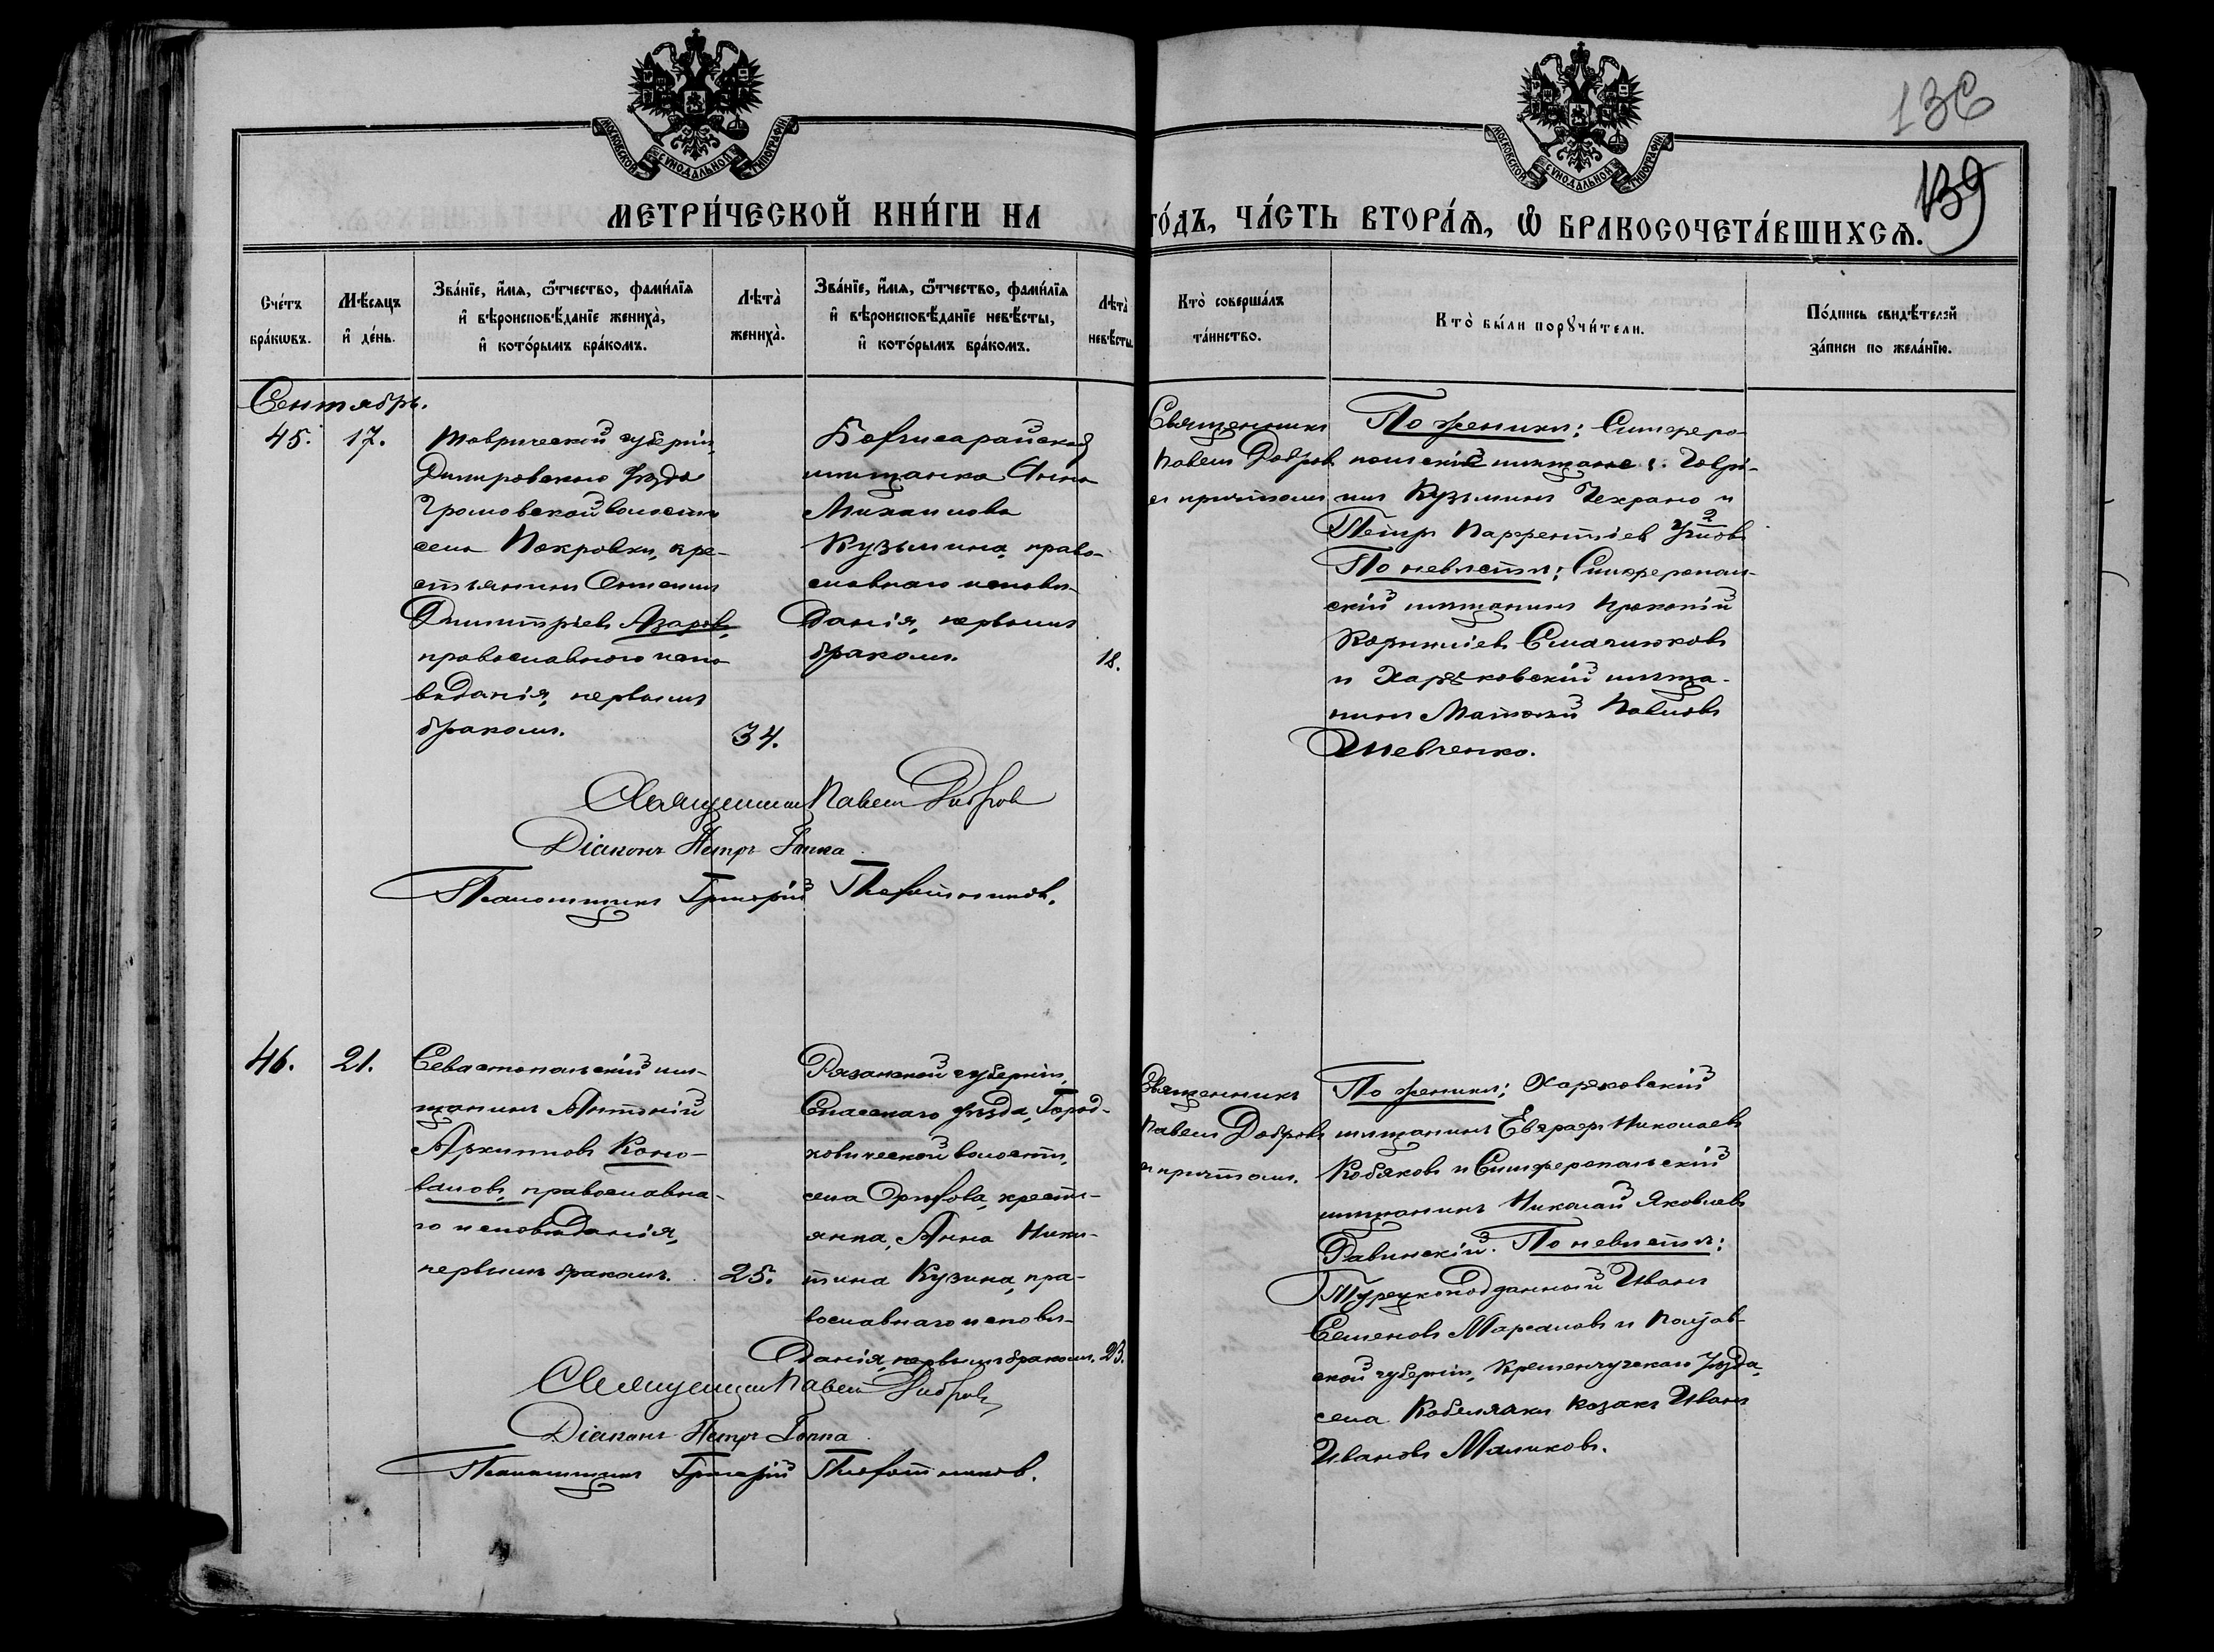 136
139
МОСКОВСКОЙ СѴНОДАЛЬНОЙ ТИПОГРАФІИ.
МОСКОВСКОЙ СѴНОДАЛЬНОЙ ТИПОГРАФІИ.
МЕТРИ́ЧЕСКОЙ КНИ́ГИ НА
ГО́ДЪ, ЧА́СТЬ ВТОРА́Ѧ, Ѽ БРАКОСОЧЕТА́ВШИХСѦ.
Сче́тъ
бра́кѡвъ.
Мѣ́сяцъ
и҆ де́нь.
Зва́нїе, и҆́мѧ, ѻ҆́тчество, фами́лїѧ
и҆ вѣроисповѣ́данїе жениха̀,
и҆ кото́рымъ бра́комъ.
Лѣта̀
жениха̀.
Зва́нїе, и҆́мѧ, ѻ҆́тчество, фами́лїѧ
и҆ вѣроисповѣ́данїе невѣ́сты,
и҆ кото́рымъ бра́комъ.
Лѣта̀
невѣ́сты.
Кто̀ соверша́лъ
та́инство.
Кто̀ бы́ли порꙋчи́тели.
По́дпись свидѣ́телей
за́писи по жела́нїю.
Сентябрь.
45.
17.
Таврической губерніи,
Днепровского уѣзда
Громовской волости
села Покровки, кре-
стьянинъ
Димитріевъ Азаровъ,
православного испо-
вѣданія, первымъ
бракомъ.
34.
Бахчисарайская
мѣщанка Анна
Михаилова
Кузьмина, право-
славнаго исповѣ-
данія, первымъ
бракомъ.
18.
Священникъ
Павелъ Добровъ
съ причтомъ
По женихѣ: Симферо-
польскіе мѣщане: Гаврі-
илъ Кузьминъ Чехрано и
Петръ Парфентіевъ
По невѣстѣ: Симферополь-
скій мѣщанинъ Прокопій
Корниліевъ
и Харьковскій мѣща-
нинъ Матвей Павловъ
Шевченко.
Священникъ Павелъ Добровъ
Діаконъ Петръ
Псаломщикъ Григорій Плотниковъ.
46.
21.
Севастопольскій мѣ-
щанинъ Антоній
Архиповъ Коно-
валовъ, православна-
го исповѣданія,
первымъ бракомъ.
25.
Рязанской губерніи,
Спасскаго уѣзда, Город-
ковической волости,
села, крестъ-
янка, Анна Ники-
тина Кузина, пра-
вославнаго исповѣ-
данія, первымъ бракомъ.
23.
Священникъ
Павелъ Добровъ
съ причтомъ.
По женихѣ: Харьковскій
мѣщанинъ Евграфъ Николаевъ
Кобяковъ и Симферопольскій
мѣщанинъ Николай Яковлевъ
Равинскій. По невѣстѣ:
Турецкоподданный Иванъ
Семеновъ и Полтав-
ской губерніи, Кременчугскаго уѣзда,
села Кобелячки козакъ Иванъ
Ивановъ Маликовъ.
Священникъ Павелъ Добровъ
Діаконъ Петръ
Псаломщикъ Григорій Плотниковъ.